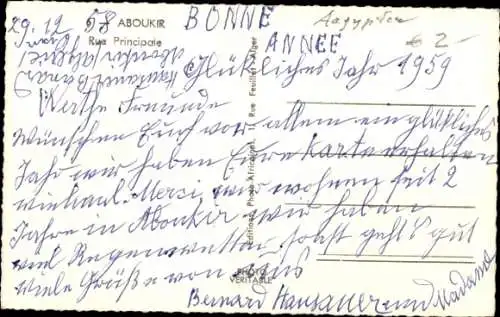 29.12 58 ABOUKIR
Rue Principale
BONNE
ANNEE
Aegypten
€ 2-
Glückliches Jahr 1959
Werthe Freunde
Wünschen Euch vor allem ein glückliches
Jahr wir haben Eure Karte erhalten
vielmal Merci, wir wohnen seit 2
Jahre in Aboukir wir haben
viel Regenwetter sonst geht's gut
viele Grüße von uns
Bernard Hansauer und Madame
Editions Photo Africaines Rue Feuillet - Alger
PHOTO
VERITABLE